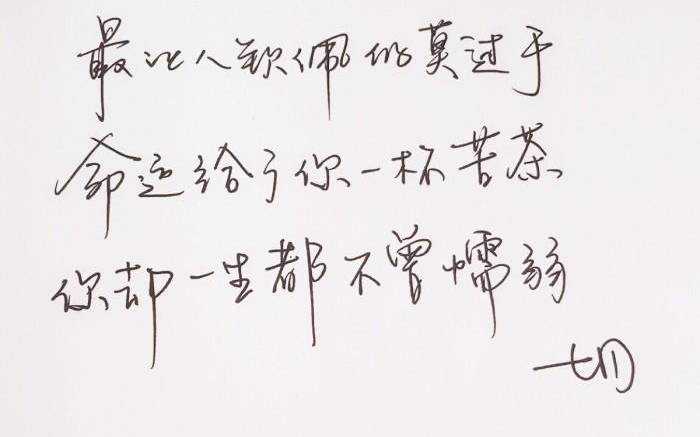 最让人钦佩的莫过于
命运给了你一杯苦茶
你却一生都不曾懦弱